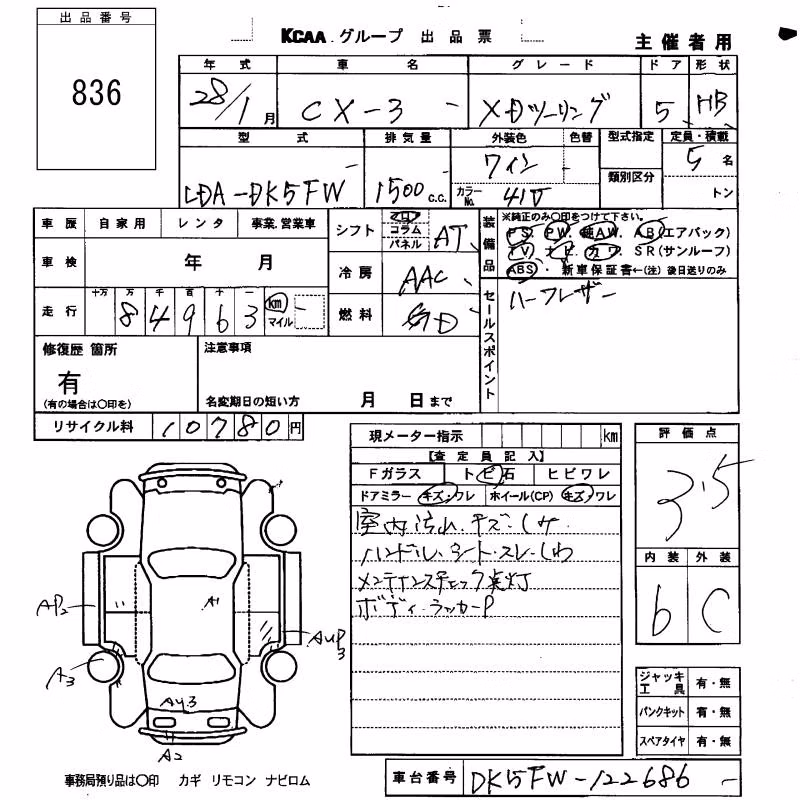 出品番号
836
KCAA グループ 出品票
主催者用
年式 車名 グレード ドア 形状
28/1月 CX-3 XDツーリング 5 HB
型式 排気量 外装色 色替 型式指定 定員・積載
LDA-DK5FW 1500 c.c. ワイン カラーNo. 41V 類別区分 5名 トン
車歴 自家用 レンタ 事業.営業車
シフト フロア コラム パネル AT
装備品
※純正のみ○印をつけて下さい。
PS. PW. 純AW. AB(エアバック)
TV. ナビ. カワ. SR(サンルーフ)
ABS・ 新車保証書←(注) 後日送りのみ
車検 年 月
冷房 AAC
走行 十万 万 千 百 十 一 84963 km マイル
燃料 D
セールスポイント
ハーフレザー
修復歴 箇所
有
(有の場合は○印を)
注意事項
名変期日の短い方 月 日まで
リサイクル料 10780円
現メーター指示 km
【査定員記入】
Fガラス トビ石 ヒビワレ
ドアミラー キズ・ワレ ホイール(CP) キズ・ワレ
室内汚れ.キズ.シミ.
ハンドル.シート.スレ.しわ
メンテナンスチェック点灯
ボディ.ラッカーP
評価点
3.5
内装 外装
b C
AP2
A3
A1
AUP3
AU3
A2
ジャッキ工具 有・無
パンクキット 有・無
スペアタイヤ 有・無
事務局預り品は○印 カギ リモコン ナビロム
車台番号 DK5FW-122686